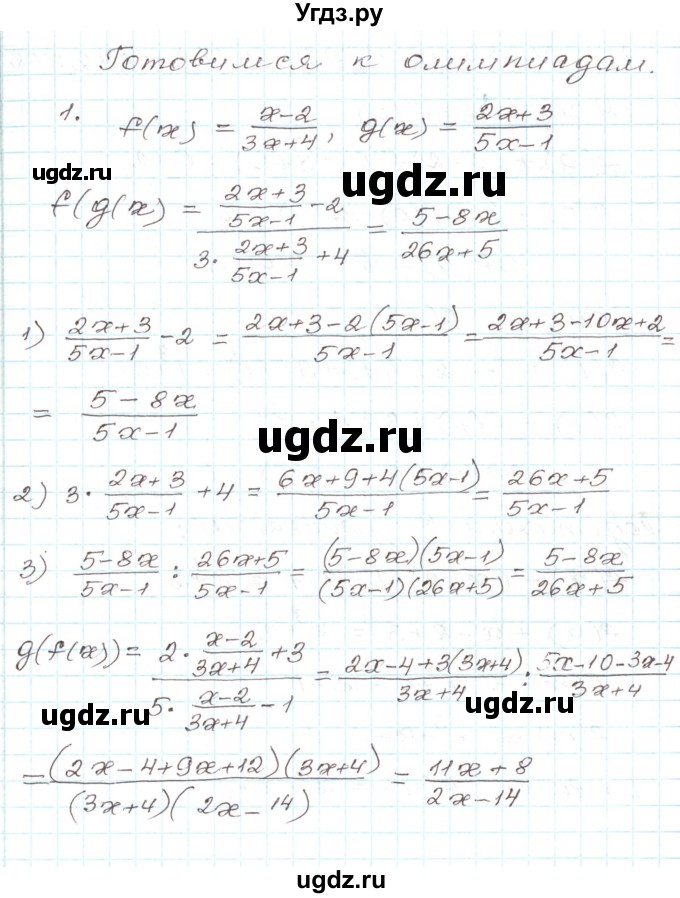 Угдз.ру
Готовимся к олимпиадам.
1. f(x) = (x-2)/(3x+4), g(x) = (2x+3)/(5x-1)
ugdz.ru
ugdz.ru
f(g(x) = ((2x+3)/(5x-1) - 2)/(3·(2x+3)/(5x-1) + 4) = (5-8x)/(26x+5)
1) (2x+3)/(5x-1) - 2 = (2x+3-2(5x-1))/(5x-1) = (2x+3-10x+2)/(5x-1) =
= (5-8x)/(5x-1)
ugdz.ru
2) 3·(2x+3)/(5x-1) + 4 = (6x+9+4(5x-1))/(5x-1) = (26x+5)/(5x-1)
3) (5-8x)/(5x-1) : (26x+5)/(5x-1) = ((5-8x)(5x-1))/((5x-1)(26x+5)) = (5-8x)/(26x+5)
g(f(x)) = (2·(x-2)/(3x+4) + 3)/(5·(x-2)/(3x+4) - 1) = (2x-4+3(3x+4))/(3x+4) : (5x-10-3x-4)/(3x+4)
ugdz.ru
ugdz.ru
= ((2x-4+9x+12)(3x+4))/((3x+4)(2x-14)) = (11x+8)/(2x-14)
ugdz.ru